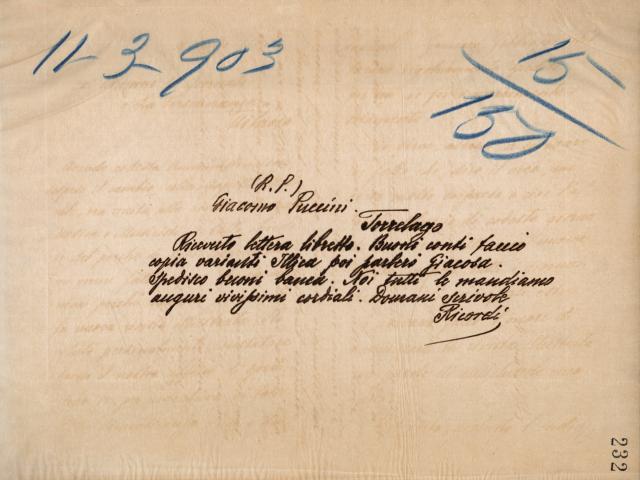 11-3-903
15
150
(R.P.)
Giacomo Puccini.
Torrelago
Ricevuto lettera libretto. Buoni conti faccio
copia varianti Illica poi parlerò Giacosa.
Spedisco buoni banca. Noi tutti le mandiamo
auguri vivissimi cordiali. Domani scrivole
Ricordi
232